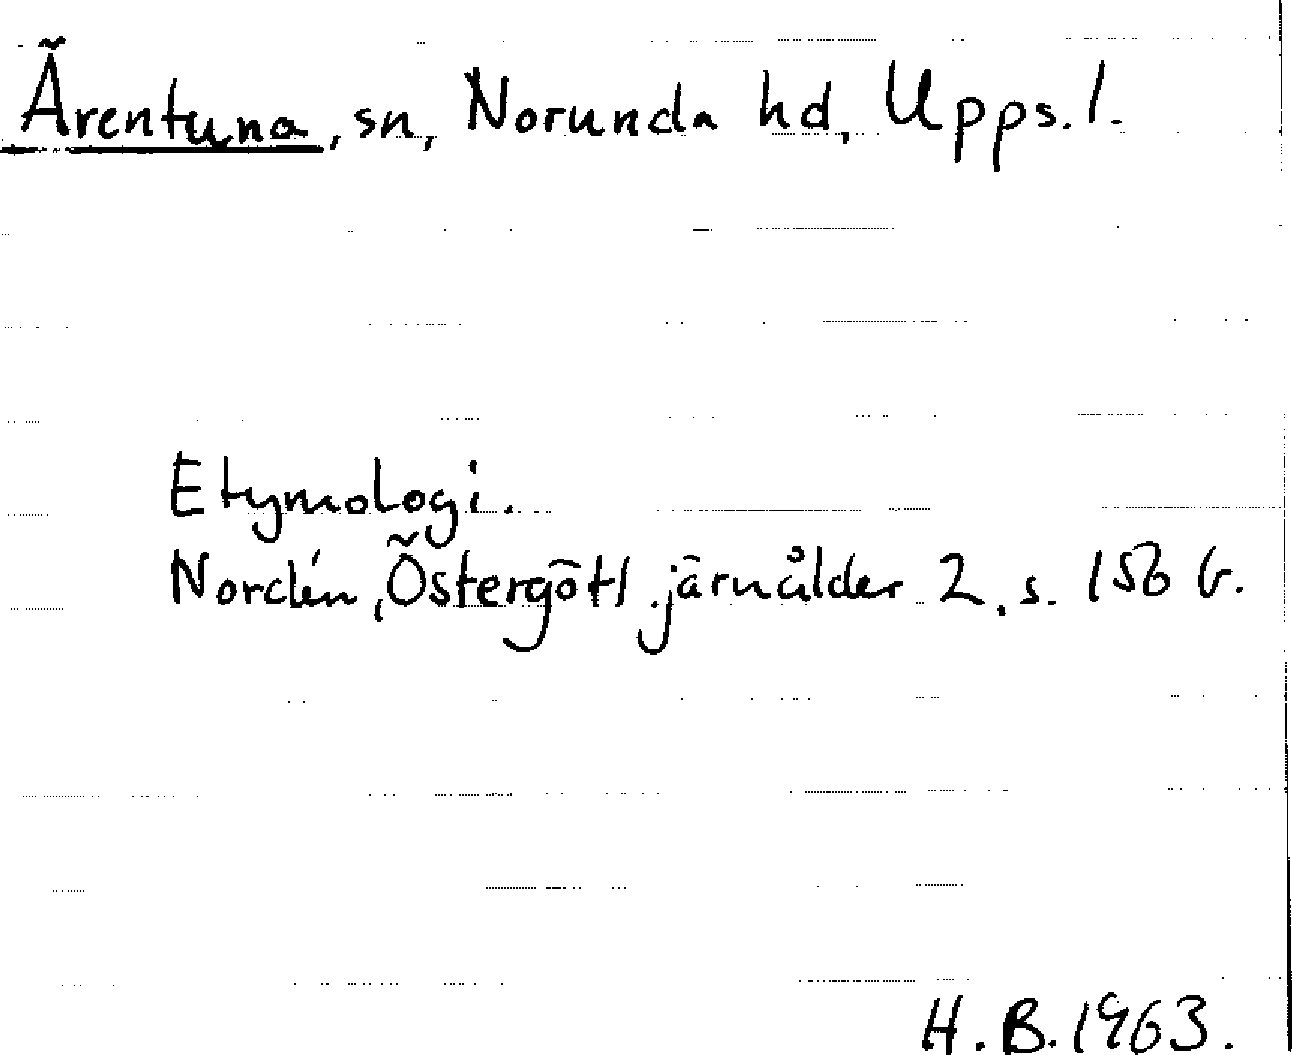 Ärentuna, sn, Norunda hd, Upps. l.
Etymologi.
Nordén, Östergötl. järnålder 2, s. 156 b.
H. B. 1963.